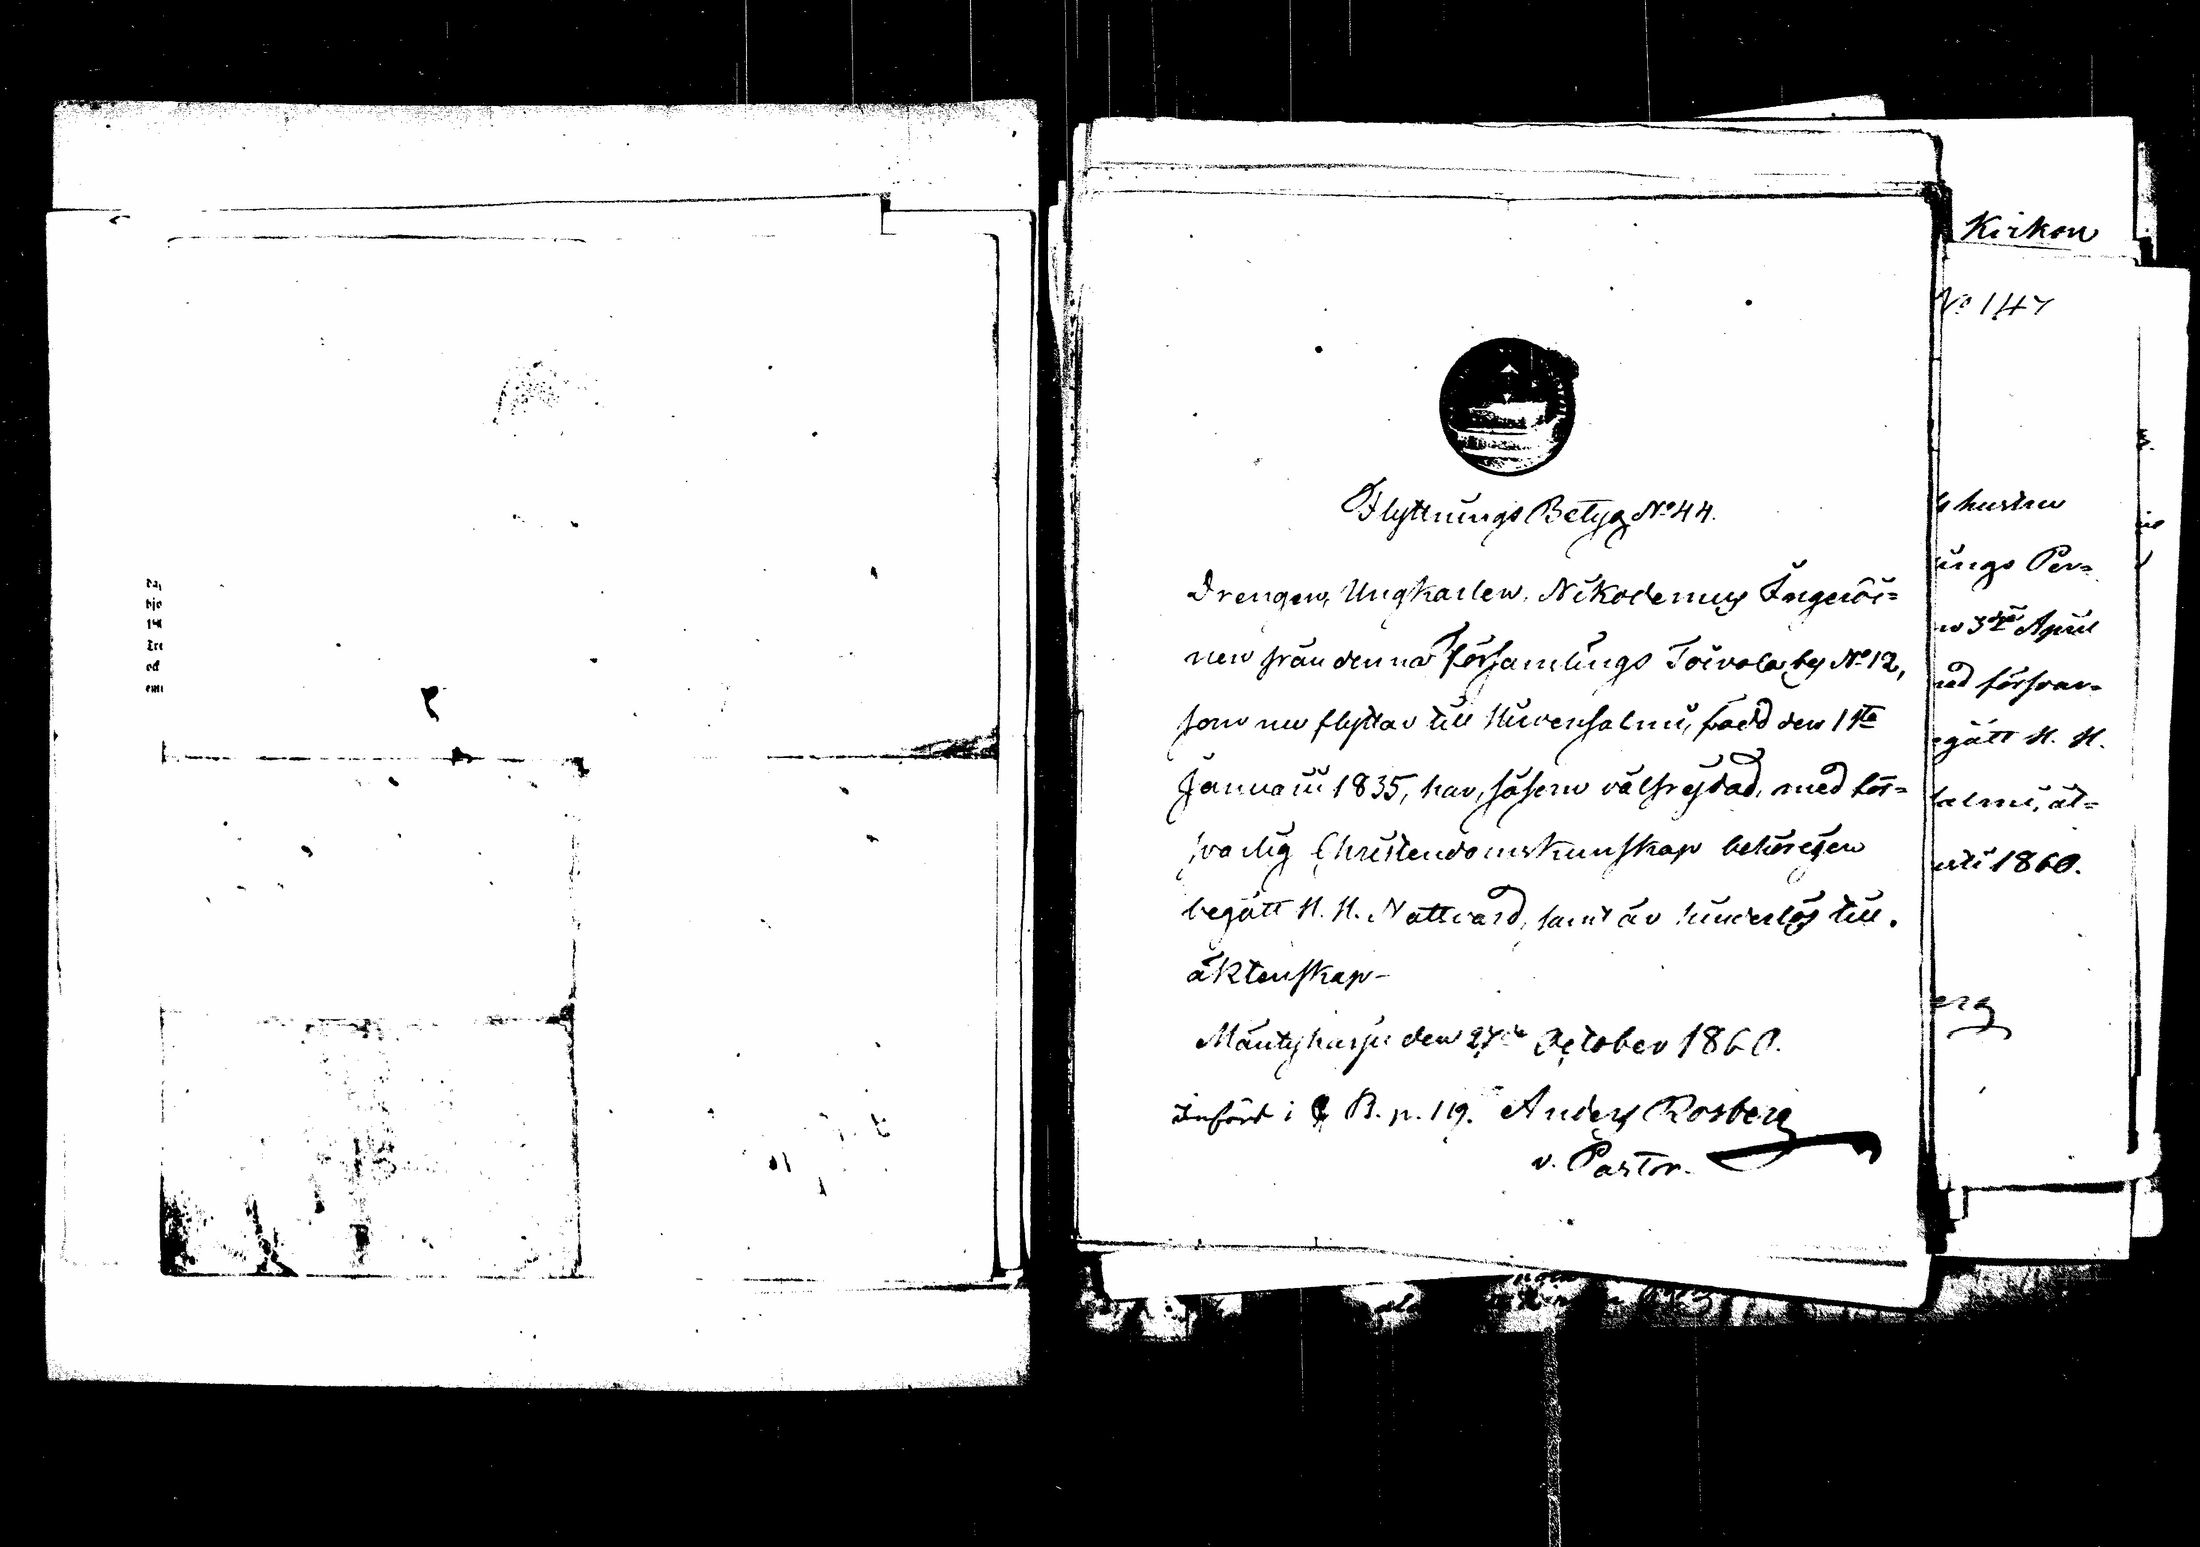 Flyttnings Betyg No 44.
Drengen, Ungkarlen, Nikodemus Ingeröi=
nen från denna Församlings Toivola by No 12,
som nu flyttar till Hirvensalmi, född den 1sta
Januarii 1835, har, såsom välfrejdad, med för=
svarlig Christendomskunskap behörigen
begått H. H. Nattvard, samt är hinderlös till
äktenskap-
Mäntyharju den 27de October 1860.
Införd i B. p. 119. Anders Rosberg
v. Pastor.
Kirkon
No 147
hustru
ings Per=
3dje April
försvar=
gått H. H.
salmi, äl=
1860.
erg